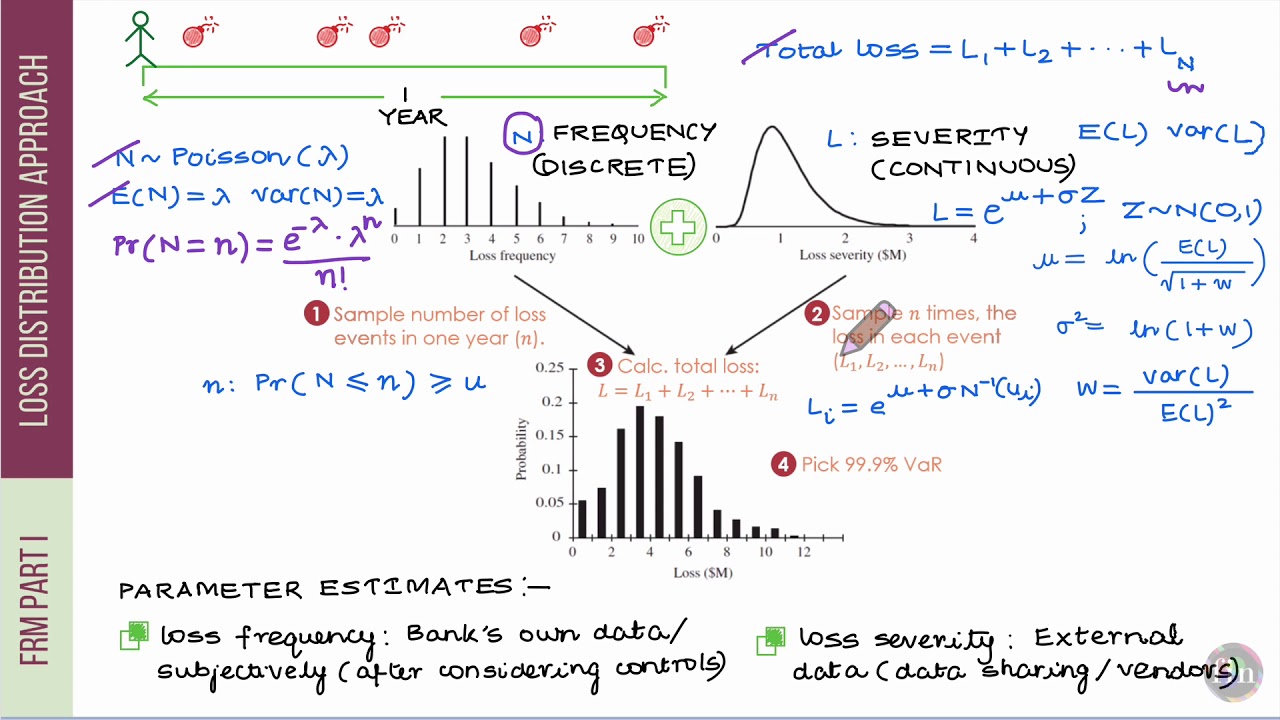 LOSS DISTRIBUTION APPROACH
FRM PART I
1
YEAR
Total loss = L₁ + L₂ + ··· + L_N
N ~ Poisson(λ)
E(N) = λ var(N) = λ
Pr(N = n) = e^{-λ} · λ^n / n!
N FREQUENCY
(DISCRETE)
0 1 2 3 4 5 6 7 8 9 10
Loss frequency
L: SEVERITY
(CONTINUOUS)
E(L) var(L)
0 1 2 3 4
Loss severity ($M)
L = e^{μ + σZ} ; Z ~ N(0,1)
μ = ln( E(L) / √(1 + w) )
σ² = ln(1 + w)
w = var(L) / E(L)²
1 Sample number of loss
events in one year (n).
n: Pr(N ≤ n) ≥ u
2 Sample n times, the
loss in each event
(L₁, L₂, ..., Lₙ)
L_i = e^{μ + σN⁻¹(u_i)}
3 Calc. total loss:
L = L₁ + L₂ + ··· + Lₙ
4 Pick 99.9% VaR
Probability
0.25
0.2
0.15
0.1
0.05
0
0 2 4 6 8 10 12
Loss ($M)
PARAMETER ESTIMATES:—
loss frequency: Bank's own data/
subjectively (after considering controls)
loss severity: External
data (data sharing/vendors)